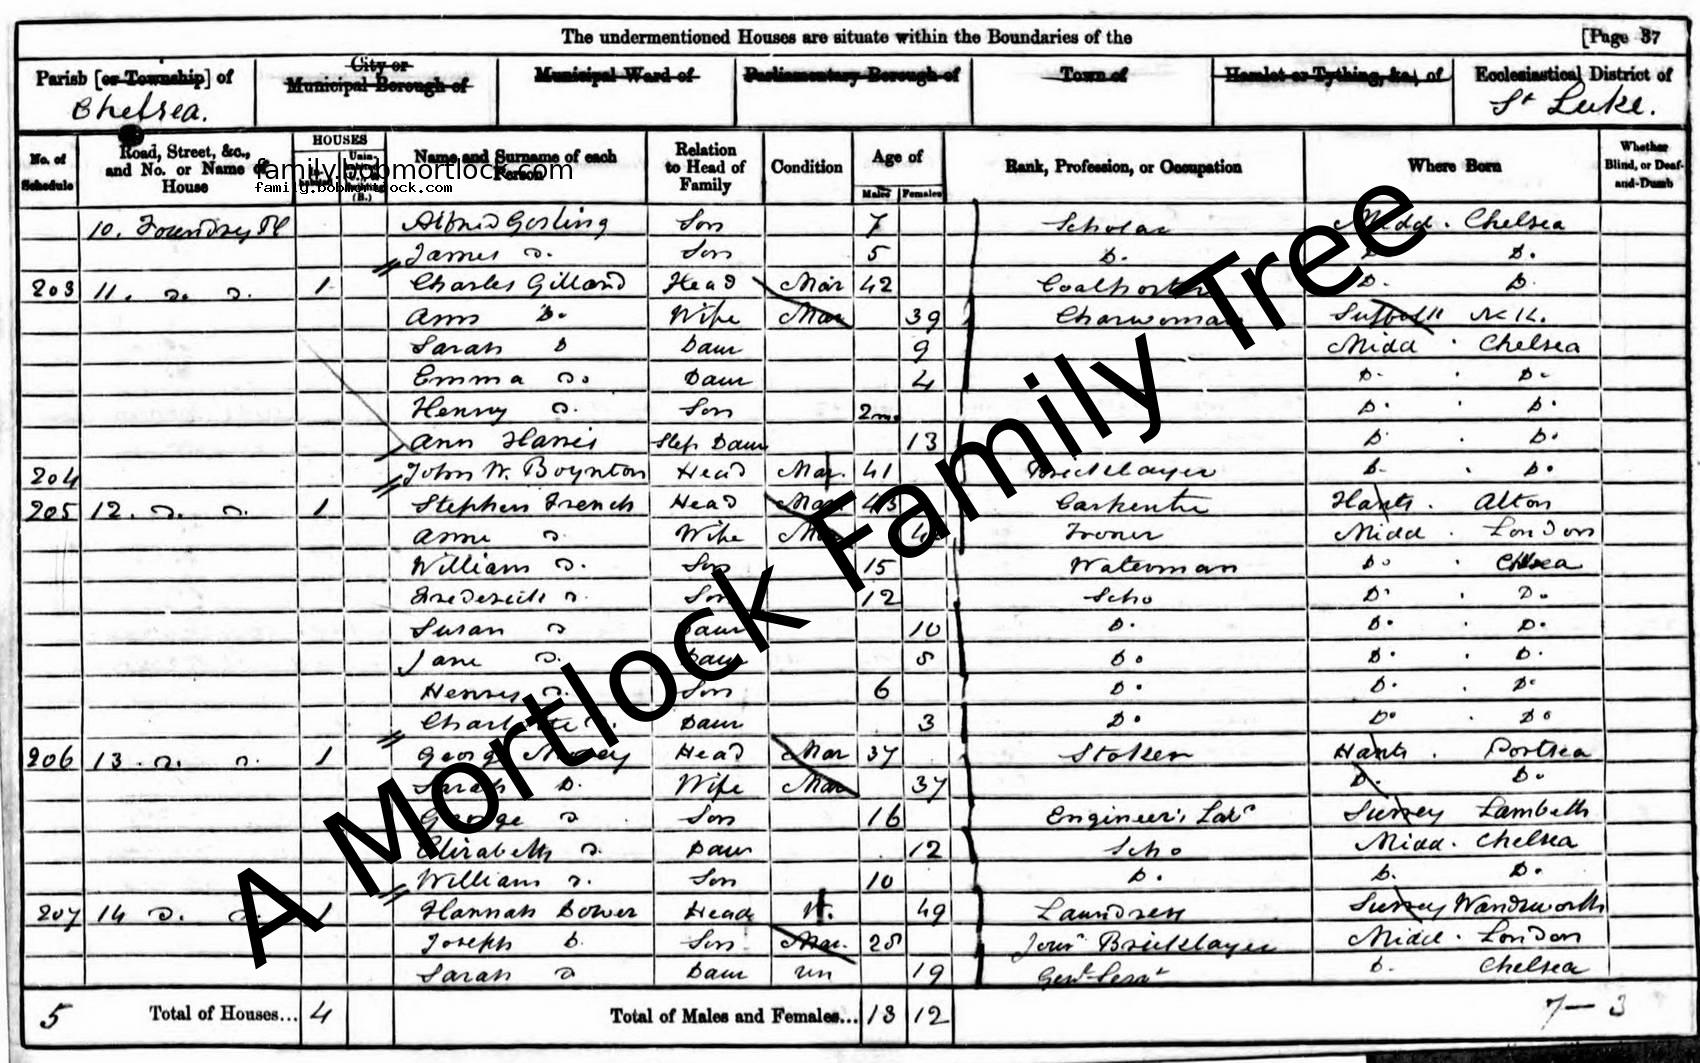 The undermentioned Houses are situate within the Boundaries of the [Page 37
Parish [or Township] of City or Municipal Borough of Municipal Ward of Parliamentary Borough of Town of Hamlet or Tything, &c., of Ecclesiastical District of
Chelsea. St Luke.
No. of Schedule Road, Street, &c., and No. or Name of House HOUSES Name and Surname of each Person Relation to Head of Family Condition Age of Males Females Rank, Profession, or Occupation Where Born Whether Blind, or Deaf-and-Dumb
family.bobmortlock.com
family.bobmortlock.com
10. Foundry Pl Alfred Gosling Son 7 Scholar Midd. Chelsea
James Do. Son 5 D. D. D.
203 11. Do. Do. 1 Charles Gilland Head Mar 42 Coalporter D. D.
Ann Do. Wife Mar 39 Charwoman Suffolk N.K.
Sarah D Daur 9 Midd. Chelsea
Emma Do. Daur 4 D. D.
Henry Do. Son 2m. D. D.
Ann Harris Step Daur 13 D. D.
204 John W. Boynton Head Mar. 41 Bricklayer D. D.
205 12. Do. Do. 1 Stephen French Head Mar 43 Carpenter Hants. Alton
Anne Do Wife Mar Ironer Midd. London
William Do. Son 15 Waterman Do. Chelsea
Frederick Do. Son 12 Scho D. Do.
Susan Do Daur 10 D. D. D.
Jane Do. Daur 8 Do. D. D.
Henry Do. Son 6 D. D. D.
Charlotte Do. Daur 3 D. Do. Do
206 13. Do. Do. 1 George Head Mar 37 Stoker Hants. Portsea
Sarah D. Wife Mar 37 D. Do.
George Do Son 16 Engineer's Labr Surrey Lambeth
Elizabeth Do. Daur 12 Scho Midd. Chelsea
William Do. Son 10 D. D. D.
207 14 Do. Do. 1 Hannah Dower Head W. 49 Laundress Surrey Wandsworth
Joseph D. Son Mar. 28 Jour Bricklayer Midd. London
Sarah Do Daur un 19 Genl Servt D. Chelsea
5 Total of Houses... 4 Total of Males and Females... 13 12 7—3
A Mortlock Family Tree